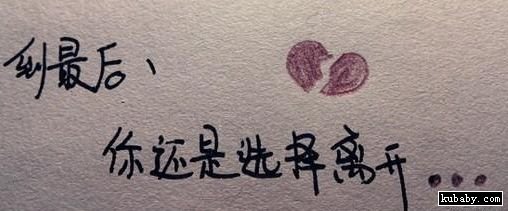 到最后、
你还是选择离开...
kubaby.com